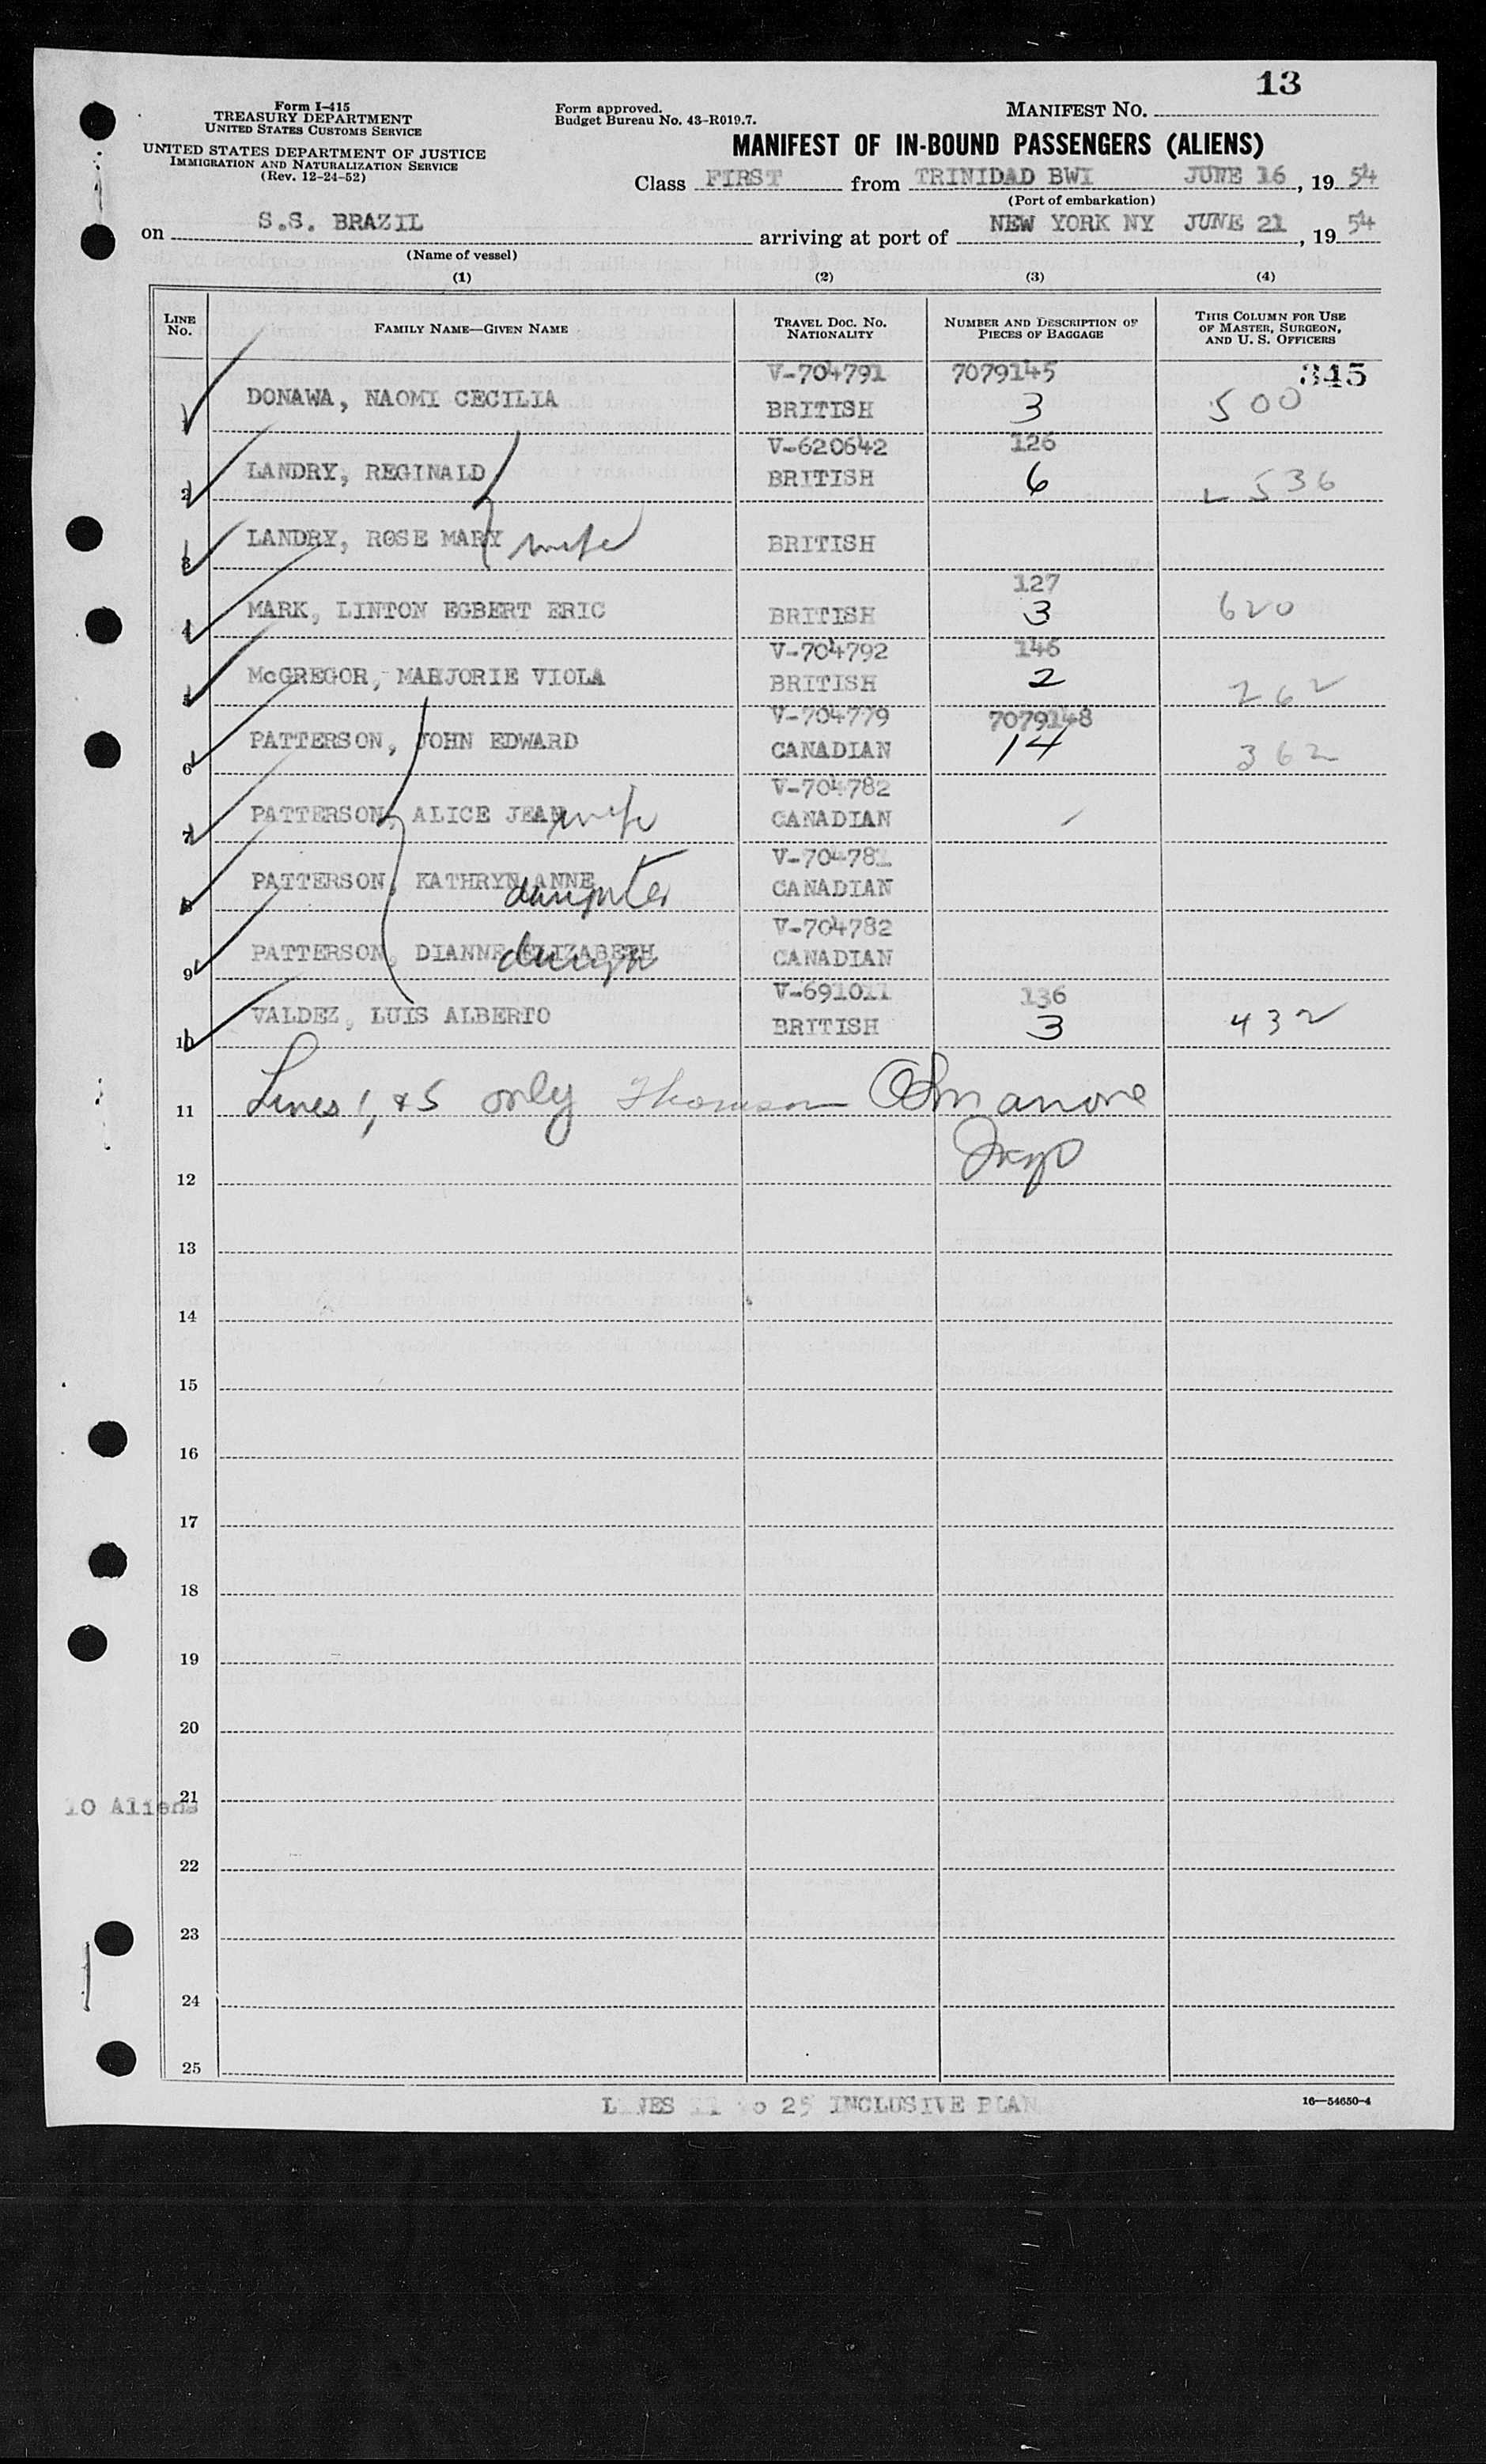 13
Form I-415
TREASURY DEPARTMENT
UNITED STATES CUSTOMS SERVICE
UNITED STATES DEPARTMENT OF JUSTICE
IMMIGRATION AND NATURALIZATION SERVICE
(Rev. 12-24-52)
Form approved.
Budget Bureau No. 43-R019.7.
MANIFEST NO.
MANIFEST OF IN-BOUND PASSENGERS (ALIENS)
Class FIRST from TRINIDAD BWI JUNE 16, 1954
(Port of embarkation)
on S.S. BRAZIL arriving at port of NEW YORK NY JUNE 21, 1954
(Name of vessel)
(1) (2) (3) (4)
LINE NO. FAMILY NAME—GIVEN NAME TRAVEL DOC. NO. NATIONALITY NUMBER AND DESCRIPTION OF PIECES OF BAGGAGE THIS COLUMN FOR USE OF MASTER, SURGEON, AND U. S. OFFICERS
V-704791 7079145 345
1 DONAWA, NAOMI CECILIA BRITISH 3 500
V-620642 126
2 LANDRY, REGINALD BRITISH 6 536
3 LANDRY, ROSE MARY wife BRITISH
127
4 MARK, LINTON EGBERT ERIC BRITISH 3 620
V-704792 146
5 McGREGOR, MARJORIE VIOLA BRITISH 2 262
V-704779 7079148
6 PATTERSON, JOHN EDWARD CANADIAN 14 362
V-704782
7 PATTERSON, ALICE JEAN wife CANADIAN
V-704781
8 PATTERSON, KATHRYN ANNE daughter CANADIAN
V-704782
9 PATTERSON, DIANNE ELIZABETH CANADIAN
V-691011 136
10 VALDEZ, LUIS ALBERTO BRITISH 3 432
11 Lines 1, & 5 only Thomson
12
13
14
15
16
17
18
19
20
21
10 Aliens
22
23
24
25
LINES 11 to 25 INCLUSIVE BLAN
16—54650-4